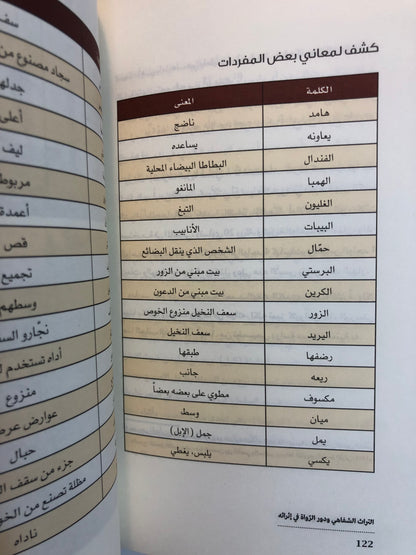 كشف لمعاني بعض المفردات
الكلمة المعنى
هامد ناضج
يعاونه يساعده
الفندال البطاطا البيضاء المحلية
الهمبا المانغو
الغليون التبغ
البيبات الأنابيب
حمّال الشخص الذي ينقل البضائع
البرستي بيت مبني من الزور
الكرين بيت مبني من الدعون
الزور سعف النخيل منزوع الخوص
اليريد سعف النخيل
رضفها طبقها
ريعه جانب
مكسوف مطوي على بعضه بعضاً
ميان وسط
يمل جمل (الإبل)
يكسي يلبس، يغطي
التراث الشفاهي ودور الرّواة في إثرائه
122
سجاد مصنوع من
جدلها
أعلى
ليف
مربوط
أعمدة
قص
تجميع
وسطهم
نجّارو
أداه تستخدم
منزوع
عوارض
حبال
جزء من سقف
مظلة تصنع من
ناداه